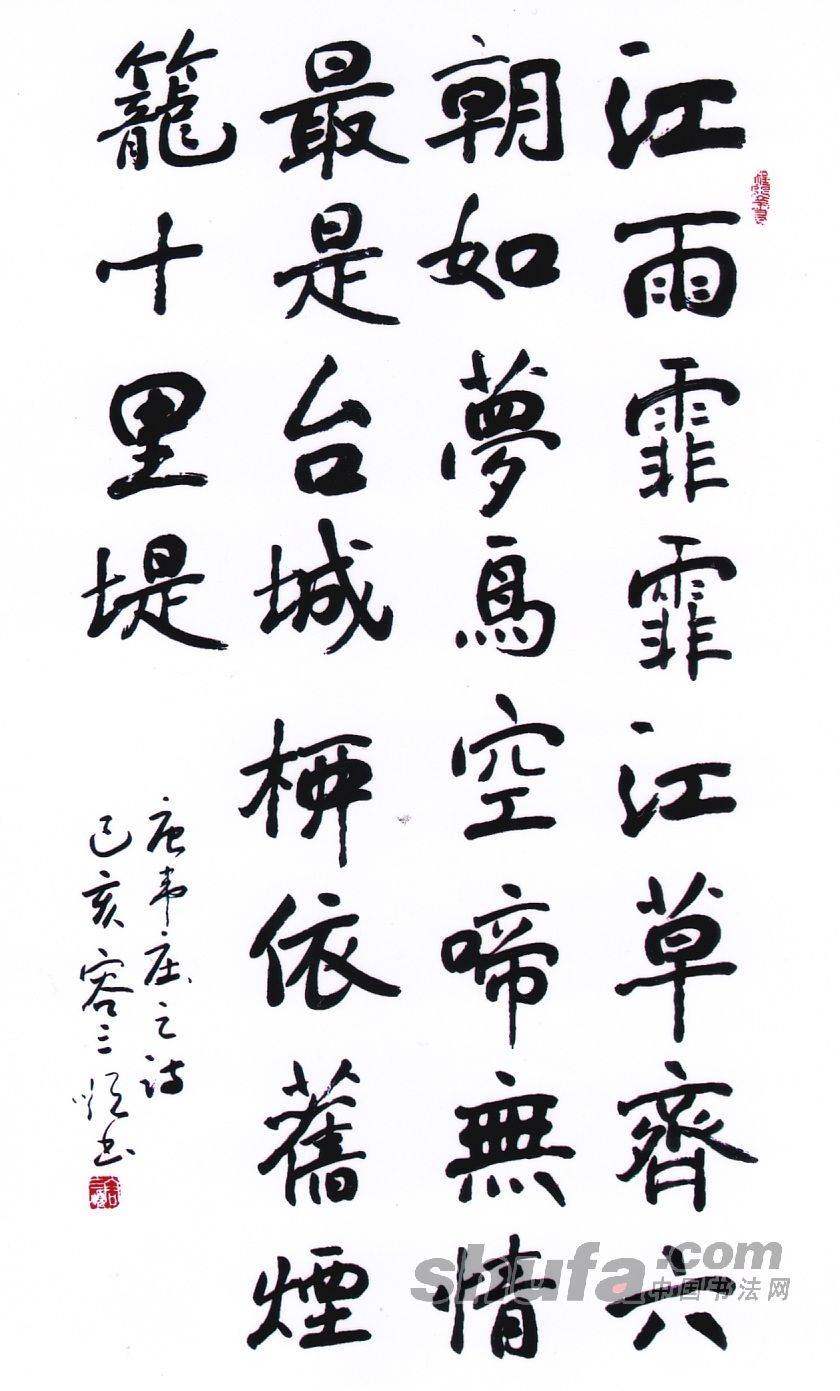 江雨霏霏江草齊六
朝如夢鳥空啼無情
最是台城桺依舊煙
籠十里堤
唐韦庄之诗
己亥容三书
shufa.com
中国书法网